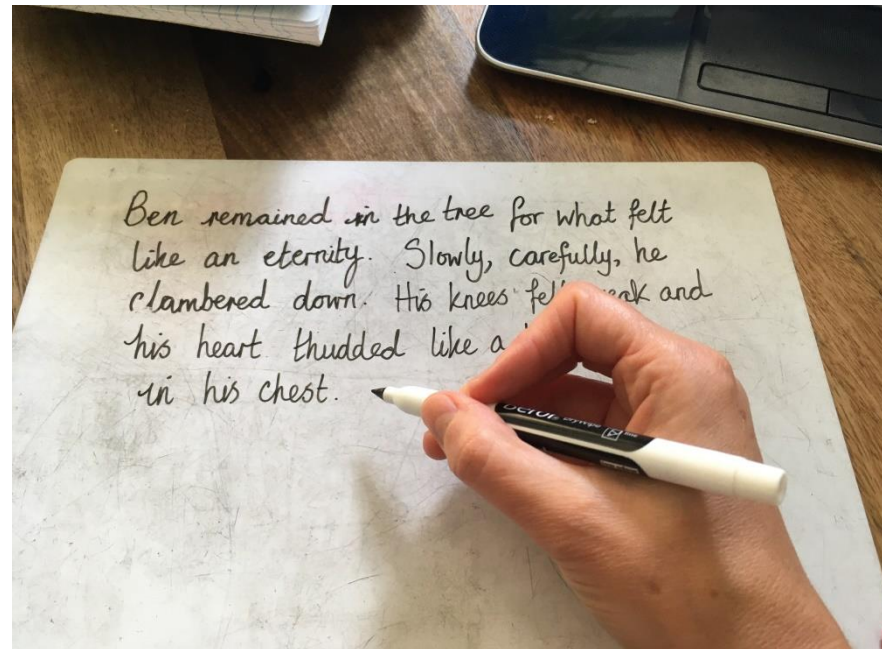 Ben remained in the tree for what felt
like an eternity. Slowly, carefully, he
clambered down. His knees and
his heart thudded like a
in his chest.
Berol
drywipe